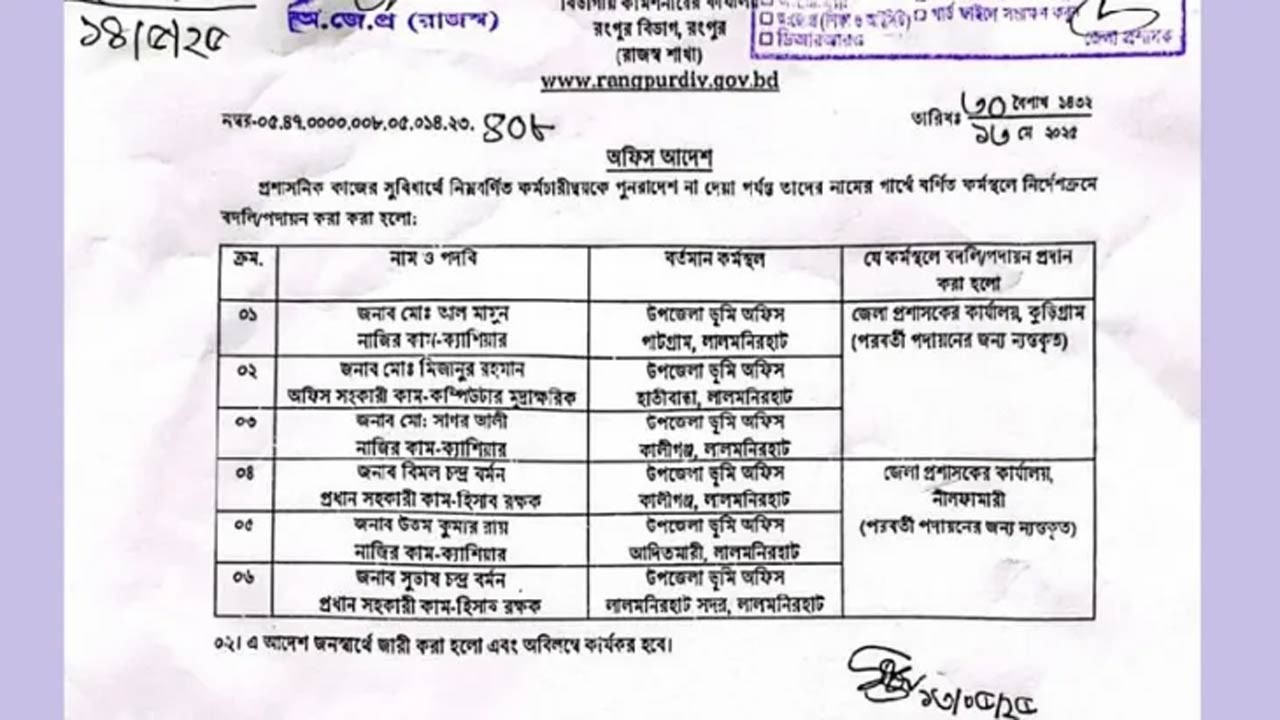 ১৪/৫/২৫
অ.জে.প্র (রাজস্ব)
বিভাগীয় কমিশনারের কার্যালয়
রংপুর বিভাগ, রংপুর
(রাজস্ব শাখা)
www.rangpurdiv.gov.bd
গার্ড ফাইলে সংরক্ষণ করুন
ডিআরআরও
জেলা প্রশাসক
নম্বর-০৫.৪৭.০০০০.০০৮.০৫.০১৪.২৩. ৪০৮
তারিখঃ ৩০ বৈশাখ ১৪৩২
১৩ মে ২০২৫
অফিস আদেশ
প্রশাসনিক কাজের সুবিধার্থে নিম্নবর্ণিত কর্মচারীদ্বয়কে পুনরাদেশ না দেয়া পর্যন্ত তাদের নামের পার্শ্বে বর্ণিত কর্মস্থলে নির্দেশক্রমে
বদলি/পদায়ন করা করা হলো:
ক্রম. নাম ও পদবি বর্তমান কর্মস্থল যে কর্মস্থলে বদলি/পদায়ন প্রদান
করা হলো
০১ জনাব মোঃ আল মামুন উপজেলা ভূমি অফিস জেলা প্রশাসকের কার্যালয়, কুড়িগ্রাম
নাজির কাম-ক্যাশিয়ার পাটগ্রাম, লালমনিরহাট (পরবর্তী পদায়নের জন্য ন্যস্তকৃত)
০২ জনাব মোঃ মিজানুর রহমান উপজেলা ভূমি অফিস
অফিস সহকারী কাম-কম্পিউটার মুদ্রাক্ষরিক হাতীবান্ধা, লালমনিরহাট
০৩ জনাব মো: সাগর আলী উপজেলা ভূমি অফিস
নাজির কাম-ক্যাশিয়ার কালীগঞ্জ, লালমনিরহাট
০৪ জনাব বিমল চন্দ্র বর্মন উপজেলা ভূমি অফিস জেলা প্রশাসকের কার্যালয়,
প্রধান সহকারী কাম-হিসাব রক্ষক কালীগঞ্জ, লালমনিরহাট নীলফামারী
০৫ জনাব উত্তম কুমার রায় উপজেলা ভূমি অফিস (পরবর্তী পদায়নের জন্য ন্যস্তকৃত)
নাজির কাম-ক্যাশিয়ার আদিতমারী, লালমনিরহাট
০৬ জনাব সুভাষ চন্দ্র বর্মন উপজেলা ভূমি অফিস
প্রধান সহকারী কাম-হিসাব রক্ষক লালমনিরহাট সদর, লালমনিরহাট
০২। এ আদেশ জনস্বার্থে জারী করা হলো এবং অবিলম্বে কার্যকর হবে।
১৩/০৫/২৫